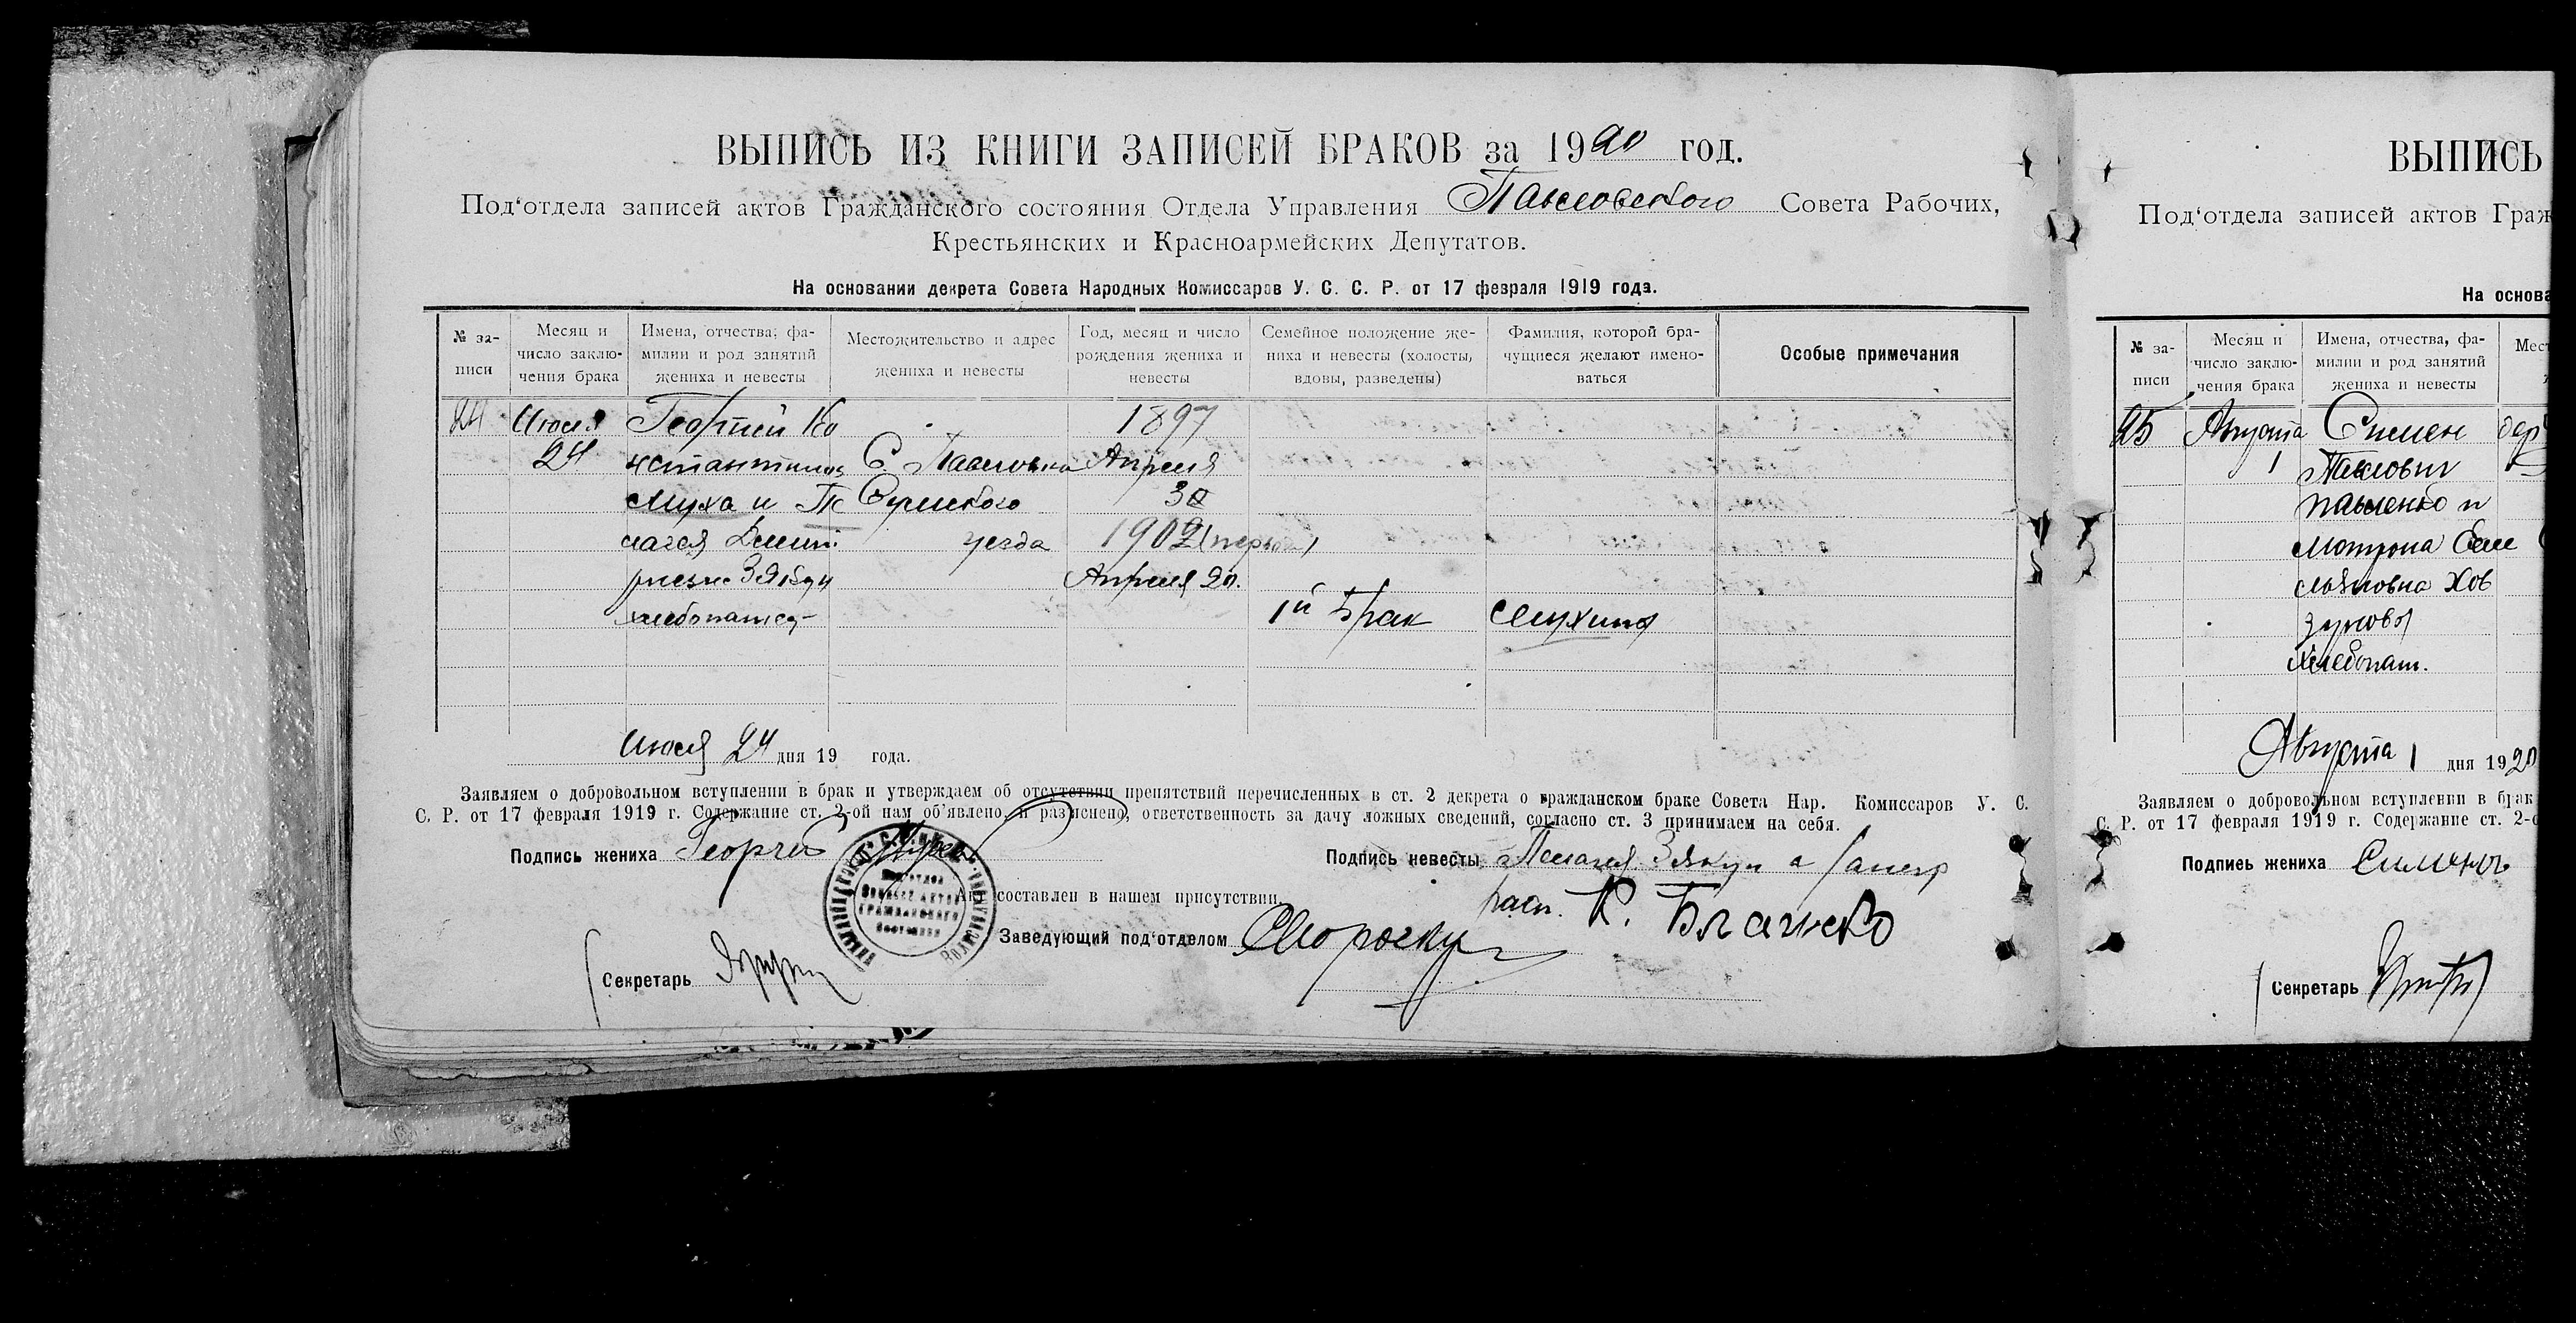 ВЫПИСЬ ИЗ КНИГИ ЗАПИСЕЙ БРАКОВ за 1920 год.
Под‘отдела записей актов Гражданского состояния Отдела Управления Павловского Совета Рабочих,
Крестьянских и Красноармейских Депутатов.
На основании декрета Совета Народных Комиссаров У. С. С. Р. от 17 февраля 1919 года.
№ за-
писи
Месяц и
число заклю-
чения брака
Имена, отчества, фа-
милии и род занятий
жениха и невесты
Местожительство и адрес
жениха и невесты
Год, месяц и число
рождения жениха и
невесты
Семейное положение же-
ниха и невесты (холосты,
вдовы, разведены)
Фамилия, которой бра-
чущиеся желают имено-
ваться
Особые примечания
24
Июля
24
Георгий Ко
нстантинов
Муха и Пе
лагея Дмит
хлебопашец
С. Павловка
Сумского
уезда
1897
Апреля
30
1902
Апреля 20.
1й Брак
Мухина
Июля 24 дня 19 года.
Заявляем о добровольном вступлении в брак и утверждаем об отсутствии препятствий перечисленных в ст. 2 декрета о гражданском браке Совета Нар. Комиссаров У. С.
С. Р. от 17 февраля 1919 г. Содержание ст. 2-ой нам об‘явлено и раз‘яснено, ответственность за дачу ложных сведений, согласно ст. 3 принимаем на себя.
Подпись жениха Георгий Муха
Подпись невесты Пелагея
Акт составлен в нашем присутствии.
расп. К.
Заведующий под‘отделом
Секретарь
ВЫПИСЬ
Под‘отдела записей актов Граж
На основа
№ за-
писи
Месяц и
число заклю-
чения брака
Имена, отчества, фа-
милии и род занятий
жениха и невесты
Мест
25
Августа
1
Симен
Павлович
Павленко и
Матрона Еме
льяновна Хов
зунова
Хлебопаш.
дер
Августа 1 дня 1920
Заявляем о добровольном вступлении в брак
С. Р. от 17 февраля 1919 г. Содержание ст. 2-о
Подпись жениха
Секретарь